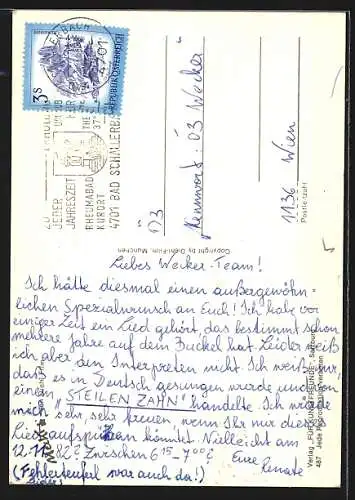 3S
REPUBLIK ÖSTERREICH
4701
JEDER
JAHRESZEIT
RHEUMABAD
KURORT
4701 BAD SCHALLERBACH
Ö3
Kennwort: Ö3 Wecker
1136 Wien
Postleitzahl
Copyright by Diehl-Film, München
Liebes Wecker-Team!
Ich hätte diesmal einen außergewöhn-
lichen Spezialwunsch an Euch! Ich habe vor
einiger Zeit ein Lied gehört, das bestimmt schon
mehrere Jahre auf dem Buckel hat. Leider weiß
ich aber den Interpreten nicht. Ich weiß nur,
daß es in Deutsch gesungen wurde und von
einem "STEILEN ZAHN" handelte. Ich würde
mich sehr, sehr freuen, wenn Ihr mir dieses
Lied aufspüren könntet. Vielleicht am
12.11.82? Zwischen 6 15 - 7 00?
Eure
Renate
(Fehlerteufel war auch da!)